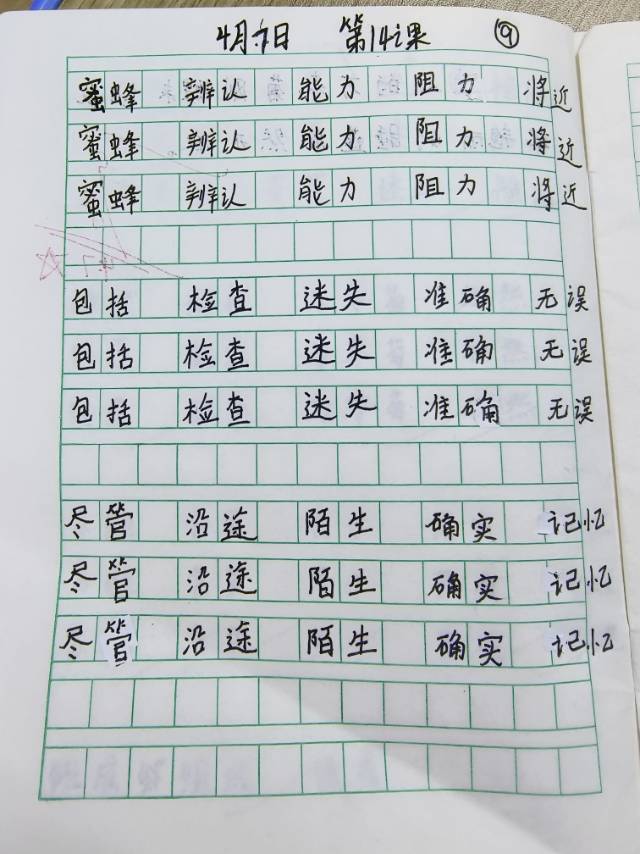 4月7日 第14课 9
蜜蜂 辨认 能力 阻力 将近
蜜蜂 辨认 能力 阻力 将近
蜜蜂 辨认 能力 阻力 将近
包括 检查 迷失 准确 无误
包括 检查 迷失 准确 无误
包括 检查 迷失 准确 无误
尽管 沿途 陌生 确实 记忆
尽管 沿途 陌生 确实 记忆
尽管 沿途 陌生 确实 记忆